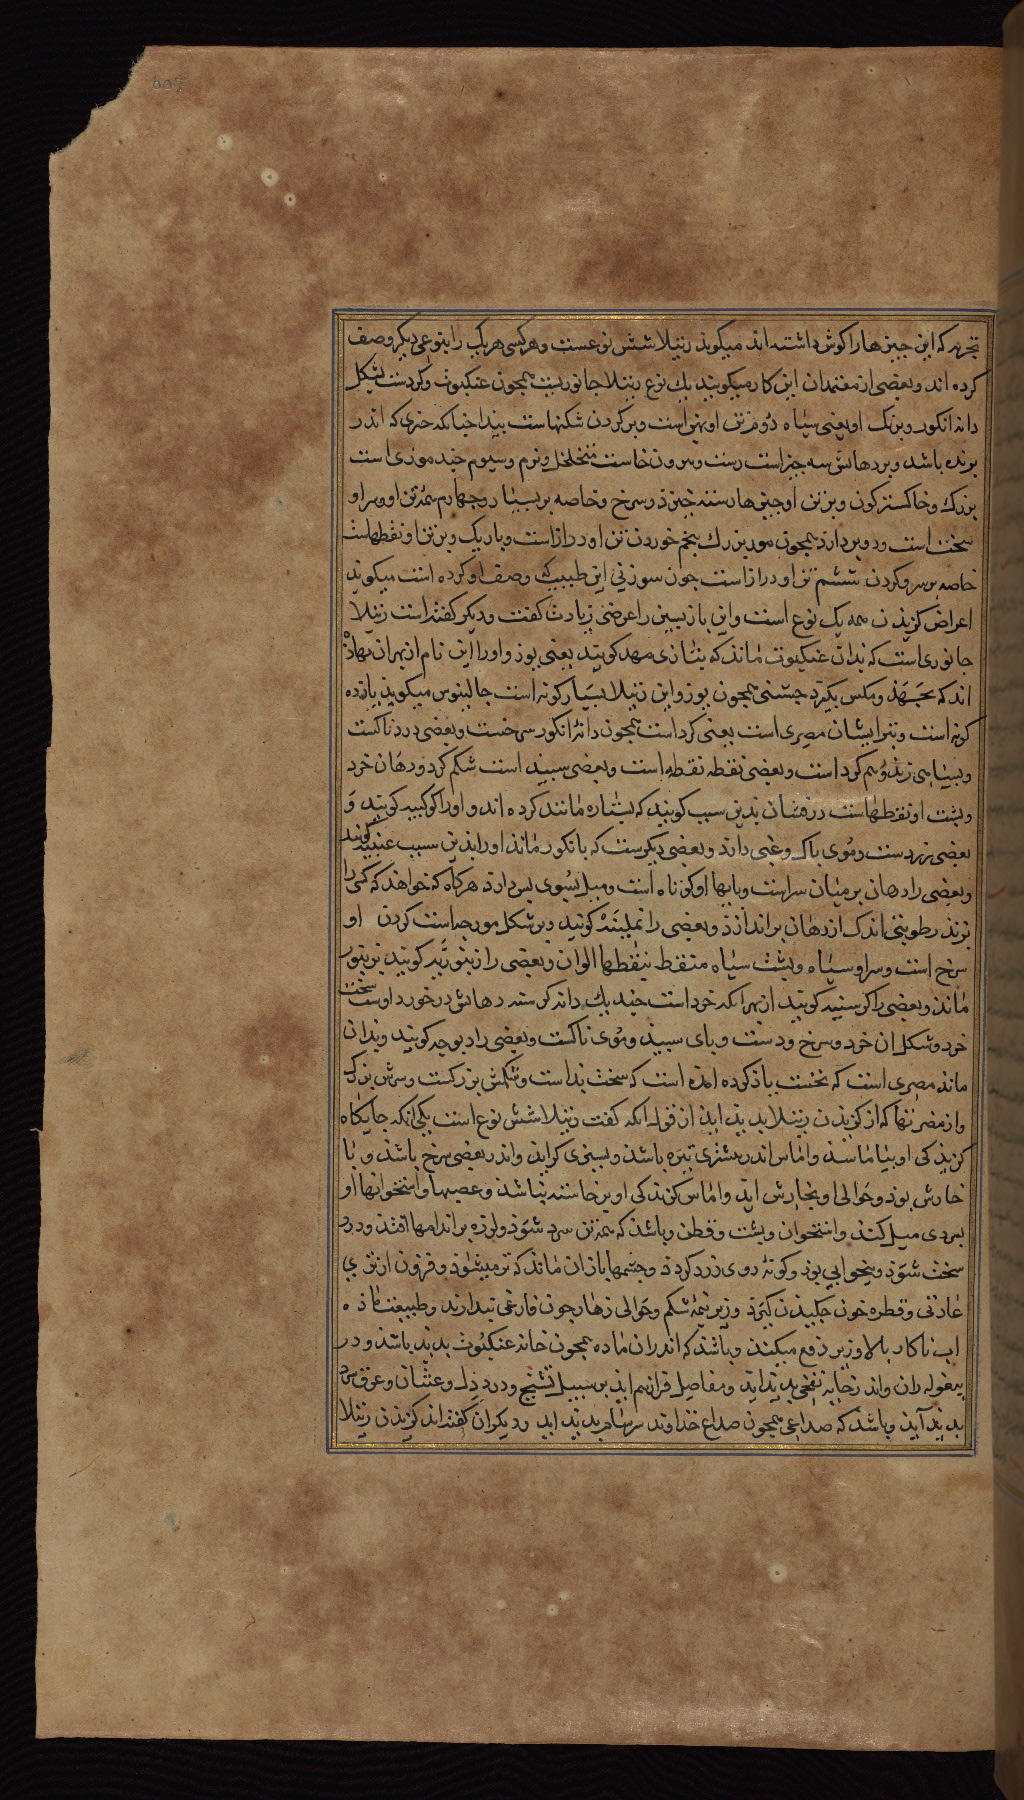 تجربه که این چیزها را کوش داشته اند میکویند رتیلا شش نوعست و هرکسی هر یک را بنوعی دیکر وصف
کرده اند و بعضی از معتمدان این کار میکویند یك نوع رتیلا جانوریست همچون عنکبوت و کردست بشکل
دانه انکور و برنک او یعنی سیاه دوم تن او است و بر کردن شکنهاست که اندر
باشد و بر دهانش سه چیز است رست و بیرون خاست متخلخل و نرم و سیوم است
بزرك و خاکسترکون و بر تن او چیزها رسته چیزی سرخ و خاصه بر بسیار و چهارم همه تن او و سر او
سخت است و دو پر دارد همچون مور بزرك پنجم خوردن تن او دراز است و باریک و بر تن او نقطهاست
خاصه بر سر و کردن ششم تن او دراز است چون سوزنی این طبیب وصف او کرده است میکوید
اعراض کزیدن همه یک نوع است و این بازپسین را عرضی زیادت کفت و دیکر کفته است رتیلا
جانوری است که بدان عنکبوت ماند که بتازی مهد کویند یعنی یوز و او را این نام از بهر آن نهاذ
اند که بجهذ و مکس بکیرد جستنی همچون یوز و این رتیلا بسیار کونه است جالینوس میکوید یازده
کونه است و بتر ایشان مصری است یعنی کرد است همچون دانۀ انکور سرخست و بعضی دردناکست
و بسیاهی زند و هم کرد است و بعضی نقطه نقطه است و بعضی سبید است شکم کرد و دهان خرد
و پشت او نقطهاست درفشان بدین سبب کویند که بستاره مانند کرده اند و او را کوکبیه کویند و
بعضی زردست و موی باک و غبی دارد و بعضی دیکرست که بانکور ماند او را بدین سبب عنبیه کویند
و بعضی را دهان بر میان سر است و پایها او کوتاه است و میل بسوی پس دارد هرکاه که خواهد که کسی را
بزند رطوبتی اندک از دهان براندازد و بعضی را نملیه کویند و بر شکل مورچه است کردن او
سرخ است و سر او سیاه و پشت سیاه منقط بنقطها الوان و بعضی را زنبوریه کویند بزنبور
ماند و بعضی را کرسنیه کویند از بهر آنکه خرد است چند یك دانه کرسنه دهانش در خورد اوست سخت
خرد و شکل آن خرد و سرخ و دست و پای سبید و موی ناکست و بعضی را دیوچه کویند و بدان
ماند مصری است که نخست یاذ کرده آمده است که سخت بد است و شکمش بزرکست و سرش بزرك
و از مضرتها که از کزیدن رتیلا پدید آید از قول آنکه کفت رتیلا شش نوع است یکی آنکه جایکاه
کزیدکی او بیاماسد و آماس اندر بیشتری تیره باشذ و بسبزی کراید و اندر بعضی سرخ باشذ و با
خارش بوذ و حوالی او بخارش آید و آماس کزیدکی او برخاسته نباشذ و عصبها و استخوانها او
بسردی میل کند و استخوان و پشت و قطن و باشذ که همه تن سرد شود و لرزه بر اندامها افتذ و درد
سخت شود و بیخوابی بوذ و کونۀ روی زرد کردذ و چشمها باز آن ماند که تر میشود و فزون از تری
عادتی و قطره خون چکیدن کیرد و زیر نیمۀ شکم و حوالی زهار چون فارغی پندارند و طبیعت ماذه
آب ناکار بالا و زیر دفع میکند و باشذ که اندر آن ماده همچون خانه عنکبوت پدید باشد و در
بیغوله ران و اندر خایه نفخی پدید آید و مفاصل فراز هم آید بر سبیل تشنج و درد دل و عثیان و عرق سرد
پدید آید و باشذ که صداعی همچون صداع خداوند سرسام پدید آید و دیکران کفته اند کزیدن رتیلا